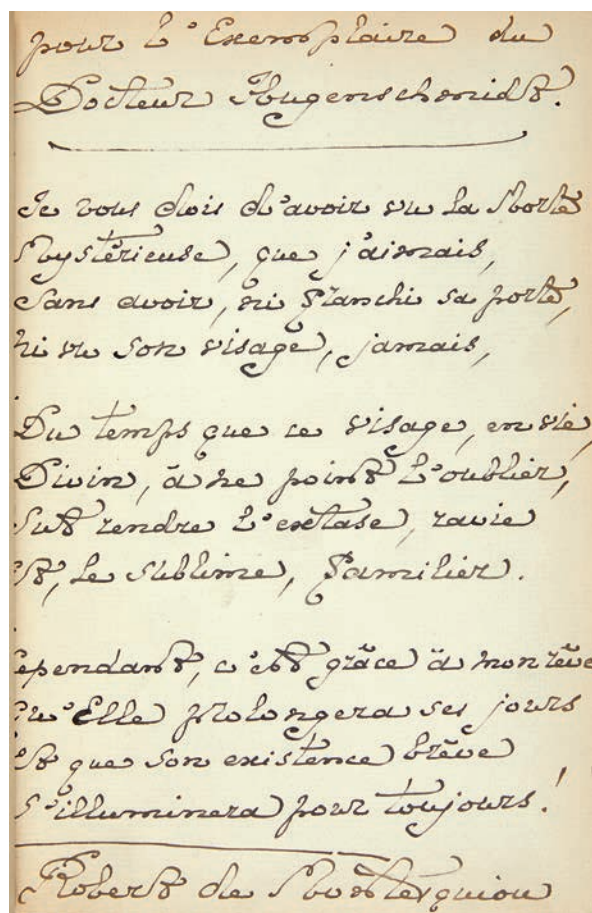 pour l'Exemplaire du
Docteur Hugenschmidt.
Je vous dois d'avoir vu la Morte
Mystérieuse, que j'aimais,
Sans avoir, ni franchi sa porte,
ni vu son visage, jamais,
Du temps que ce visage, en vie,
Divin, à ne point l'oublier,
Sut rendre l'extase, ravie
Et, le sublime, familier.
Cependant, c'est grâce à mon rêve
Qu'Elle prolongera ses jours
Et que son existence brève
S'illuminera pour toujours!
Robert de Montesquiou